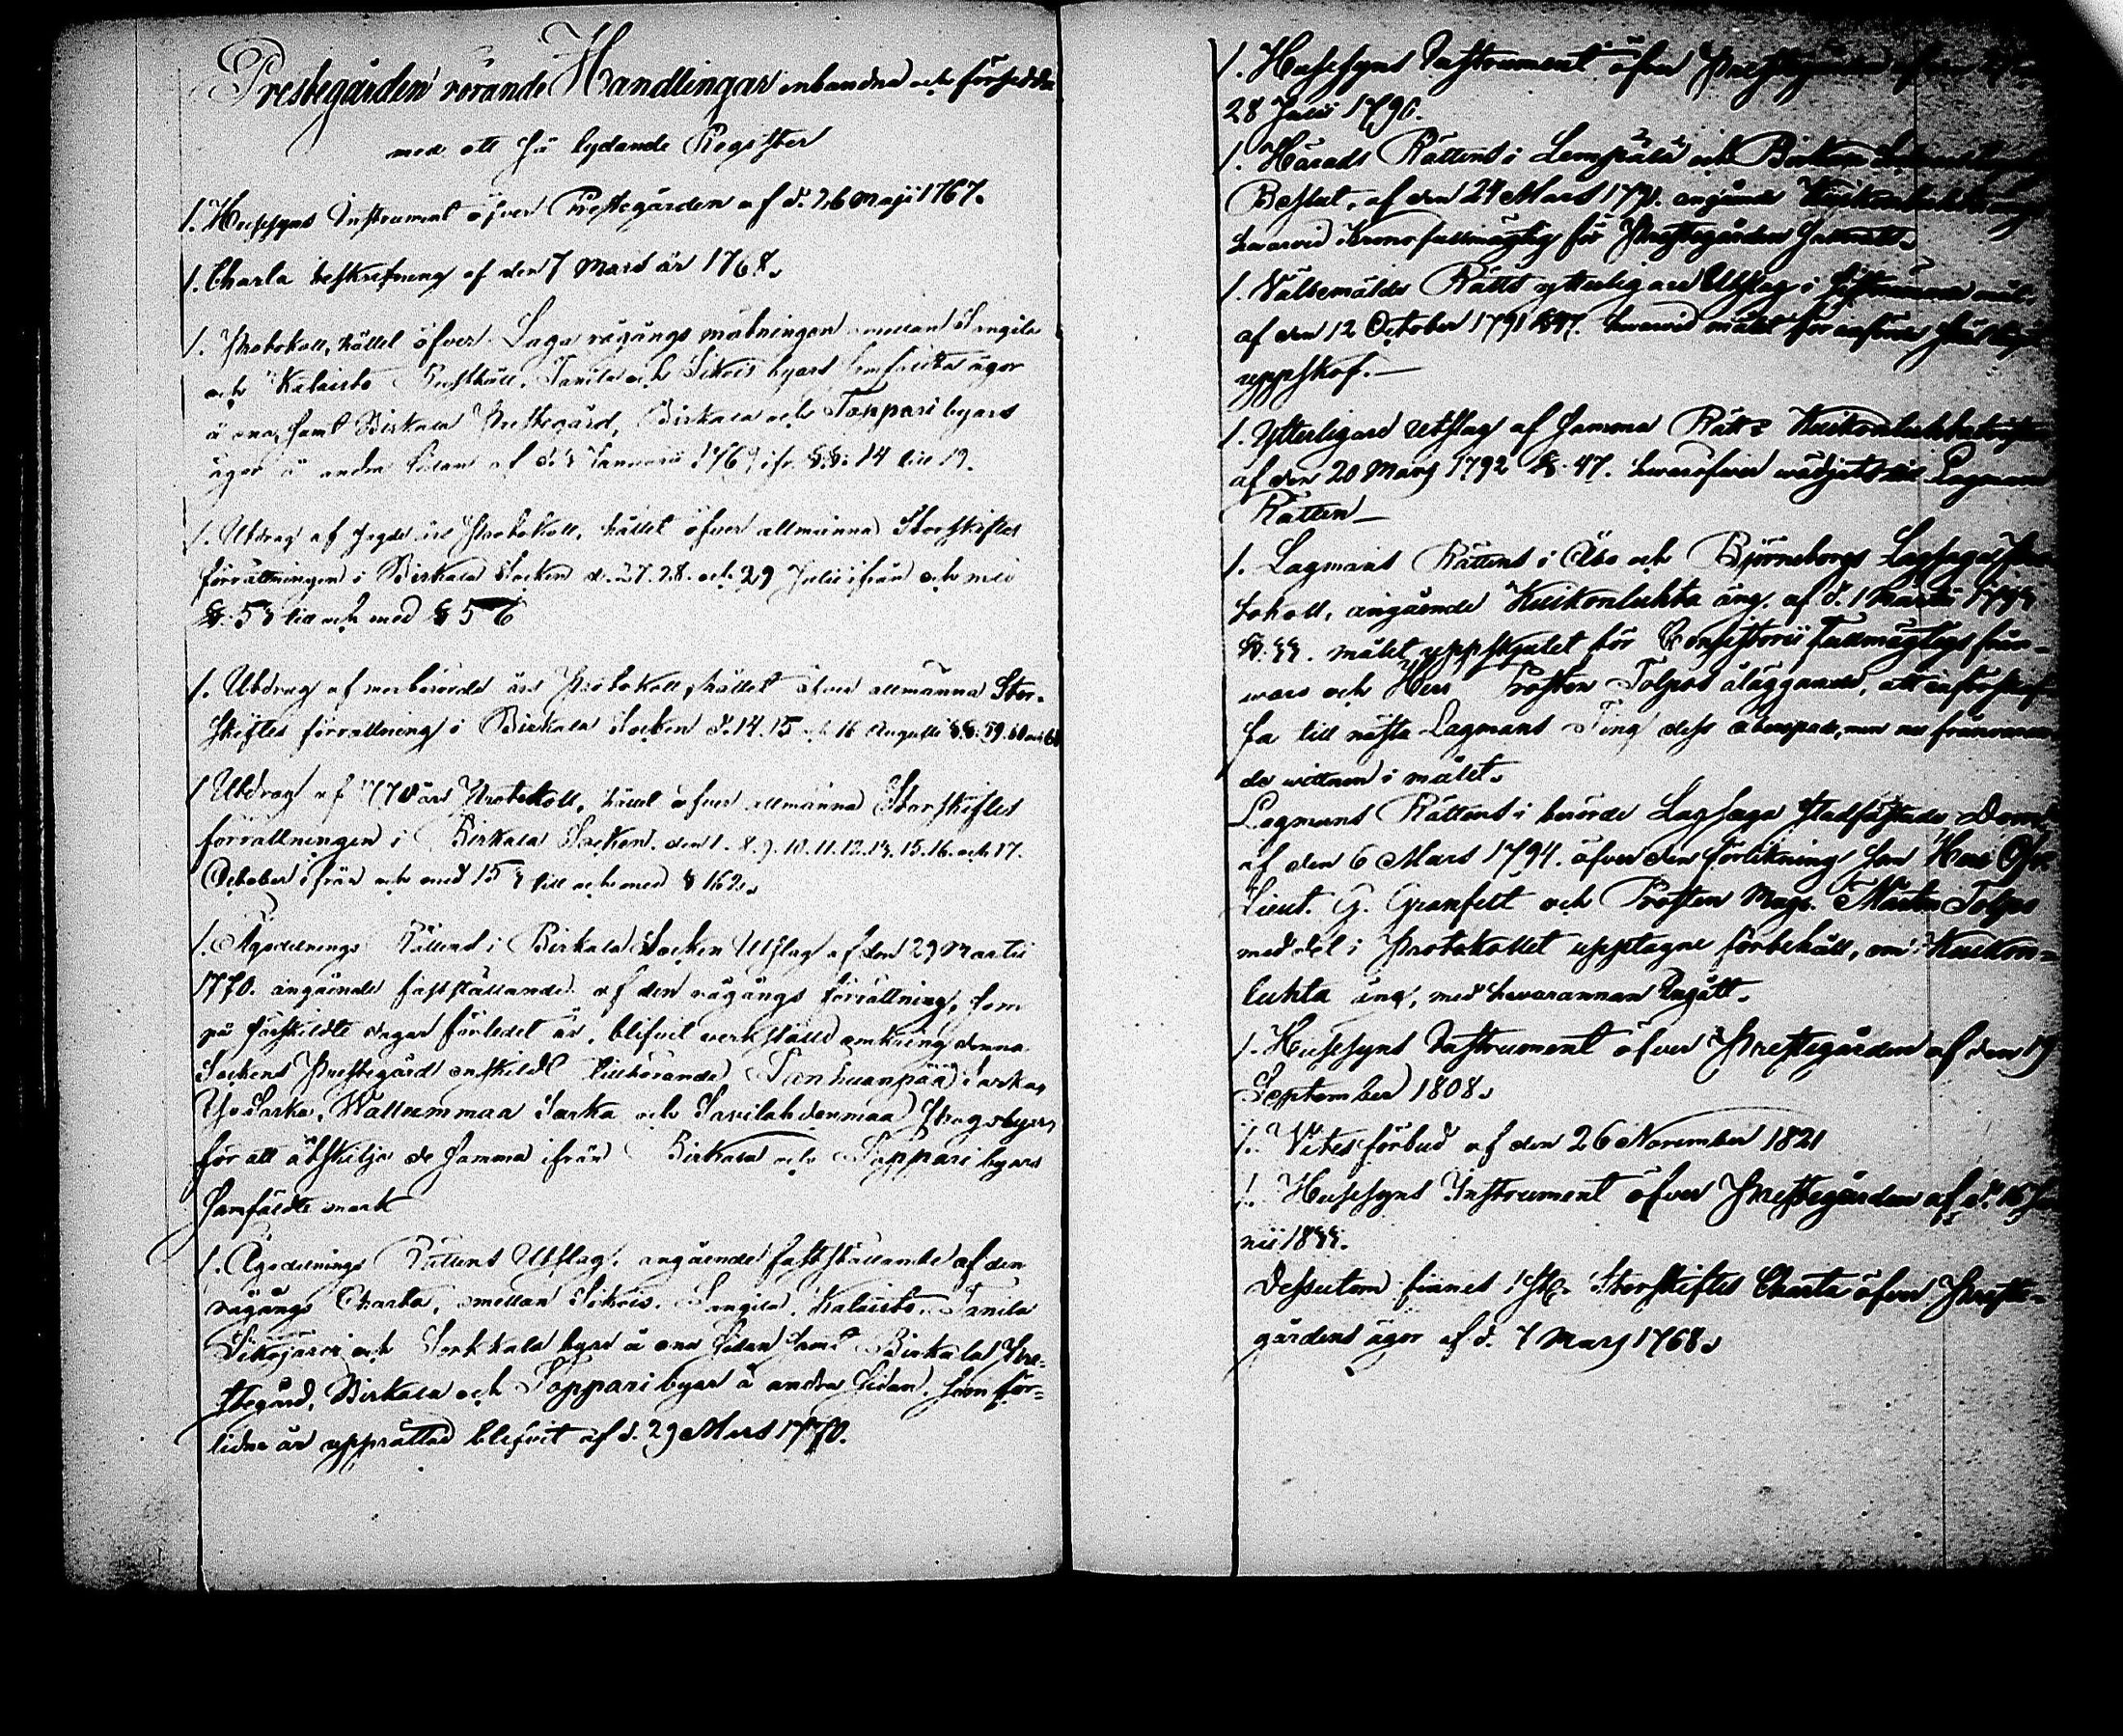 Prestegården rörande Handlingar inbundna och försedda
med ett så lydande Register
1. Husesyns Instrument öfver Prestegården af d. 26 Maji 1767.
1. Charta beskrifning af den 7 Mars år 1768.
1. Protokoll, hållet öfver Laga rågångs mätningen emellan Sangila
och Kalaisto Rusthåll, Tanila och Sikois byars samfällta ägor
å ena, samt Birkala Prestegård, Birkala och Tappari byars
ägor å andra sidan af d. 3 Januarii 1769 ifr. §§. 14 till 19.
1. Utdrag af sagde års Protokoll, hållet öfver allmänna Storskiftes
förrättningen i Birkala Socken d. 27. 28. och 29 Julii ifrån och med
§. 53 till och med § 56
1. Utdrag af merberörde års Protokoll, hållet öfver allmänna Stor-
skiftes förrättning i Birkala Socken d. 14. 15 och 16 Augusti §§. 59. 60 och 61
1 Utdrag af 1770 års Protokoll, hållet öfver allmänna Storskiftes
förrättningen i Birkala Socken. den 1. 8. 9. 10. 11. 12. 13. 15. 16. och 17.
October ifrån och med 153 till och med § 162.
1. Ägodelnings Rättens i Birkala Socken Utslag af den 29 Martii
1770. angående fastställande af den rågångs förrättning, som
på särskildte dagar förledet år, blifvit verkställd omkring denna
Sockens Prestegård enskildt tillhörande Sarka,
Yli Sarka, Wallammaa Sarka och Savilahdenmaa
för att åtskilja de samma ifrån Birkala och Tappari byars
samfäldte mark
1. Ägodelnings Rättens Utslag, angående fastställande af den
rågångs Charta, emellan Sikois, Sangila, Kalaisto, Tanila
Sikojärvi och Sorkkala byar å ena sidan samt Birkala Pre-
stegård, Birkala och Tappari byar å andra sidan, som för-
lidne år upprättad blifvit af d. 29 Mars 1770.
1. Husesyns Instrument öfver Prestegården af den
28 Junii 1790.
1. Härads Rättens i Lempälä och Birkala
Beslut, af den 24 Mars 1791. angående Kuikonluhta äng
hvarvid Kronofullmägtig för Prestegården
1. Välbemälde Rätts ytterligare Utslag i mål
af den 12 October 1791 §47. hvarvid målet
uppskof. —
1. Ytterligare Utslag af samma Rätt Kuikonluhta
af den 20 Mars 1792 §. 47. hvaröfver vädjats till Lagmans
Rätten —
1. Lagmans Rättens i Åbo och Björneborgs Lagsagas Pro-
tokoll, angående Kuikonluhta äng, af d. 1 Martii 1793
§. 33. målet uppskjutet för Consistorii Fullmägtigs från-
varo och Herr Prosten Tolpos åläggande, att
sa till nästa Lagmans Ting dess åberopade, men nu frånvaran-
de wittnen i målet.
Lagmans Rättens i berörde Lagsaga stadfästade Dom
af den 6 Mars 1794. öfver den förlikning som Herr Öfv.
Lieut. G. Granfelt och Prosten Mag. Martin Tolpo
med det i Protokollet upptagne förbehåll, om Kuikon-
luhta äng, med hvarannan Ingått.
1. Husesyns Instrument öfver Prestegården af den 19
September 1808.
1. Vitesförbud af den 26 November 1821
1. Husesyns Instrument öfver Prestegården af d. 16 Ju-
nii 1833.
Dessutom finnes 1 st. Storskiftes Charta öfver Preste-
gårdens ägor af d. 7 Mars 1768.